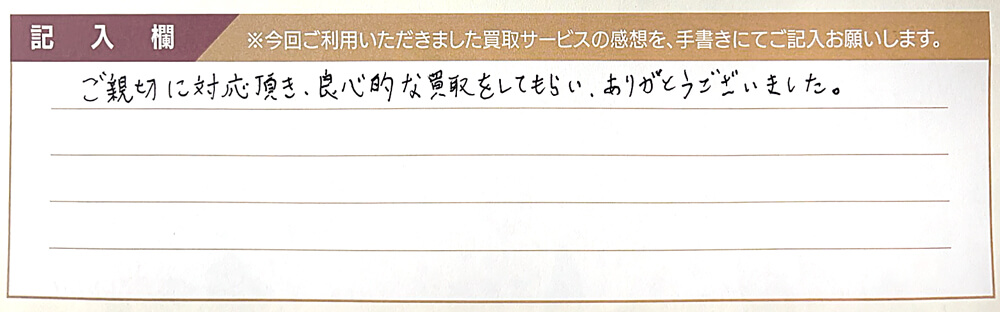 記入欄 ※今回ご利用いただきました買取サービスの感想を、手書きにてご記入お願いします。
ご親切に対応頂き、良心的な買取をしてもらい、ありがとうございました。